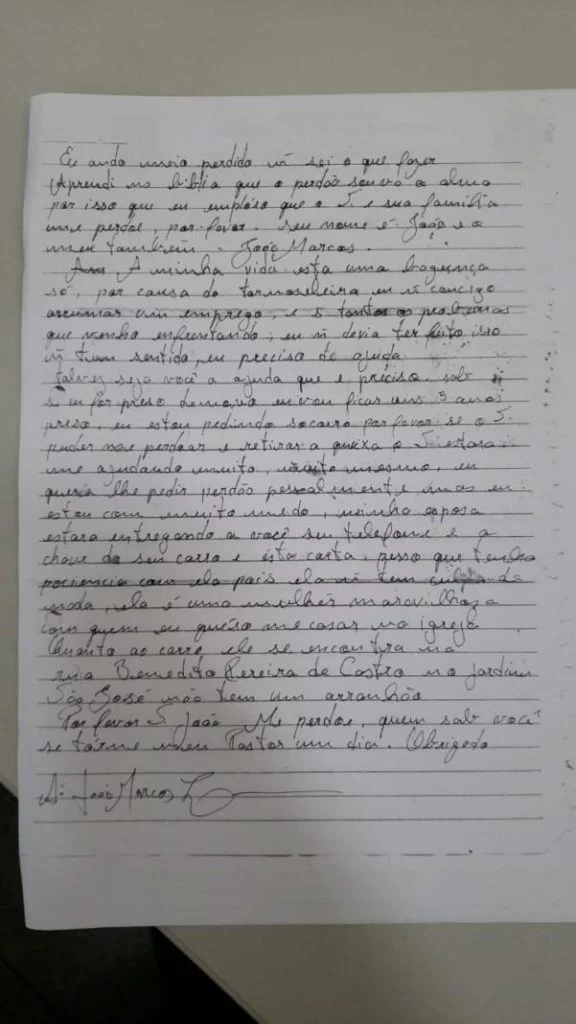 Eu ando meio perdido ñ sei o que fazer
Aprendi na biblia que o perdão souva a alma
por isso que eu emploso que o S. e sua familia
me perdoe, por favor. seu nome é João e o
meu tambem. João Marcos.
A minha vida esta uma bagunça
só, por causa da tornoseleira eu ñ concigo
arrumar um emprego, e S tantos os problemas
que venho enfrentando, eu ñ devia ter feito isso
ñ tem sentido, eu preciso de ajuda.
talvez seja você a ajuda que e preciso. sab
se eu for preso denovo eu vou ficar uns 5 anos
preso, eu estou pedindo socorro por favor se o S.
puder me perdoar e retirar a queixa o S. estara
me ajudando muito, muito mesmo, eu
queria lhe pedir perdão pessoalmente mas eu
estou com muito medo, minha esposa
estara entregando a você seu telefone e a
chave do seu carro e esta carta. pesso que tenha
paciencia com ela pois ela ñ tem culpa de
nada, ela é uma mulher maravilhoza
com quem eu quéso me casar na igreja
Quanto ao carro, ele se encontra na
rua Benedito Pereira de Castro no jardim
São José não tem um arranhão
Por favor S. João Me perdoe, quem sab você
se torne meu Pastor um dia. Obrigado
As: João Marcos